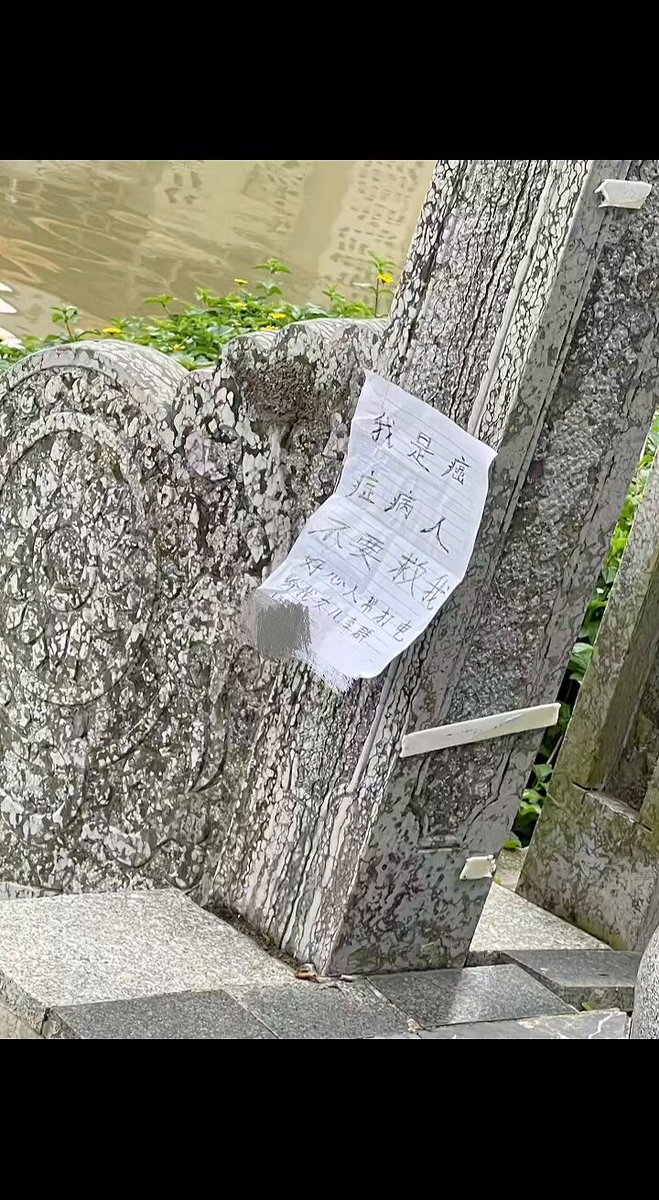 我是癌
症病人
不要救我
好心人帮打电
给我女儿王群